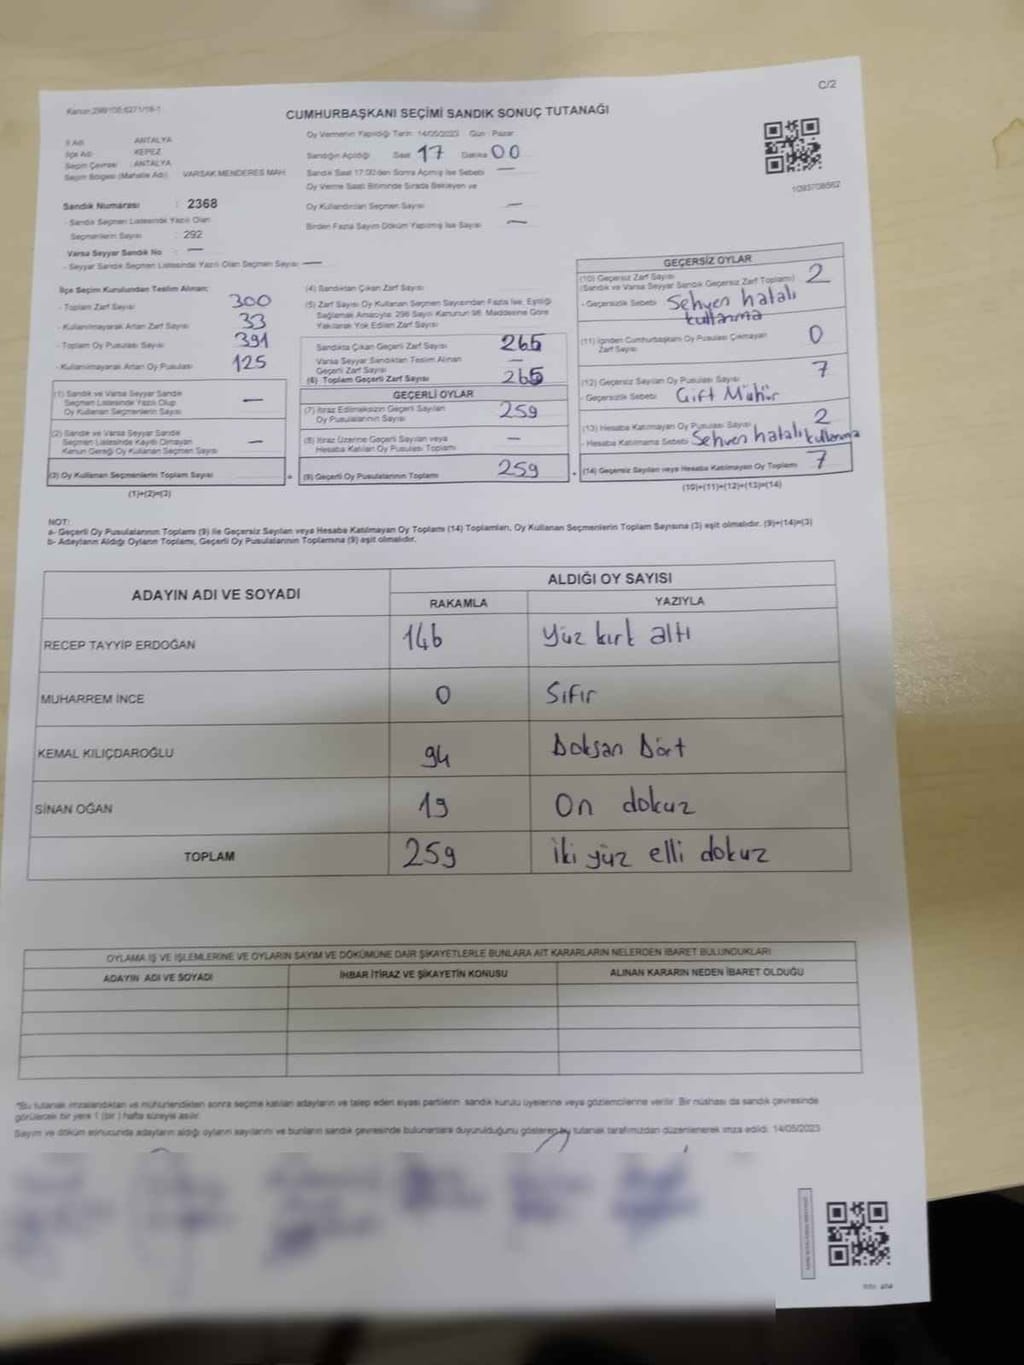 C/2
CUMHURBAŞKANI SEÇİMİ SANDIK SONUÇ TUTANAĞI
İl Adı : ANTALYA
İlçe Adı : KEPEZ
Seçim Çevresi : ANTALYA
Seçim Bölgesi (Mahalle Adı) : VARSAK MENDERES MAH.
Oy Vermenin Yapıldığı Tarih: 14/05/2023 Gün : Pazar
Sandığın Açıldığı Saat 17 Dakika 00
Sandık Saat 17:00'den Sonra Açılmış İse Sebebi —
Oy Verme Saati Bitiminde Sırada Bekleyen ve
Oy Kullandırılan Seçmen Sayısı —
Birden Fazla Sayım Döküm Yapılmış İse Sayısı —
1093708562
Sandık Numarası : 2368
- Sandık Seçmen Listesinde Yazılı Olan
Seçmenlerin Sayısı : 292
Varsa Seyyar Sandık No : —
- Seyyar Sandık Seçmen Listesinde Yazılı Olan Seçmen Sayısı : —
İlçe Seçim Kurulundan Teslim Alınan;
- Toplam Zarf Sayısı 300
- Kullanılmayarak Artan Zarf Sayısı 33
- Toplam Oy Pusulası Sayısı 391
- Kullanılmayarak Artan Oy Pusulası 125
(1) Sandık ve Varsa Seyyar Sandık
Seçmen Listesinde Yazılı Olup
Oy Kullanan Seçmenlerin Sayısı —
(2) Sandık ve Varsa Seyyar Sandık
Seçmen Listesinde Kayıtlı Olmayan
Kanun Gereği Oy Kullanan Seçmen Sayısı —
(3) Oy Kullanan Seçmenlerin Toplam Sayısı
(1)+(2)=(3)
(4) Sandıktan Çıkan Zarf Sayısı
(5) Zarf Sayısı Oy Kullanan Seçmen Sayısından Fazla İse, Eşitliği
Sağlamak Amacıyla; 298 Sayılı Kanunun 98. Maddesine Göre
Yakılarak Yok Edilen Zarf Sayısı
Sandıkta Çıkan Geçerli Zarf Sayısı 265
Varsa Seyyar Sandıktan Teslim Alınan
Geçerli Zarf Sayısı —
(6) Toplam Geçerli Zarf Sayısı 265
GEÇERLİ OYLAR
(7) İtiraz Edilmeksizin Geçerli Sayılan
Oy Pusulalarının Sayısı 259
(8) İtiraz Üzerine Geçerli Sayılan veya
Hesaba Katılan Oy Pusulası Toplamı —
(9) Geçerli Oy Pusulalarının Toplamı 259
GEÇERSİZ OYLAR
(10) Geçersiz Zarf Sayısı
(Sandık ve Varsa Seyyar Sandık Geçersiz Zarf Toplamı) 2
- Geçersizlik Sebebi : Sehven hatalı
kullanma
(11) İçinden Cumhurbaşkanı Oy Pusulası Çıkmayan
Zarf Sayısı 0
(12) Geçersiz Sayılan Oy Pusulası Sayısı 7
- Geçersizlik Sebebi : Çift Mühür
(13) Hesaba Katılmayan Oy Pusulası Sayısı 2
- Hesaba Katılmama Sebebi : Sehven hatalı kullanma
(14) Geçersiz Sayılan veya Hesaba Katılmayan Oy Toplamı 7
(10)+(11)+(12)+(13)=(14)
NOT:
a- Geçerli Oy Pusulalarının Toplamı (9) ile Geçersiz Sayılan veya Hesaba Katılmayan Oy Toplamı (14) Toplamları, Oy Kullanan Seçmenlerin Toplam Sayısına (3) eşit olmalıdır. (9)+(14)=(3)
b- Adayların Aldığı Oyların Toplamı, Geçerli Oy Pusulalarının Toplamına (9) eşit olmalıdır.
ADAYIN ADI VE SOYADI
ALDIĞI OY SAYISI
RAKAMLA YAZIYLA
RECEP TAYYİP ERDOĞAN 146 Yüz kırk altı
MUHARREM İNCE 0 Sıfır
KEMAL KILIÇDAROĞLU 94 Doksan Dört
SİNAN OĞAN 19 On dokuz
TOPLAM 259 İki yüz elli dokuz
OYLAMA İŞ VE İŞLEMLERİNE VE OYLARIN SAYIM VE DÖKÜMÜNE DAİR ŞİKAYETLERLE BUNLARA AİT KARARLARIN NELERDEN İBARET BULUNDUKLARI
ADAYIN ADI VE SOYADI İHBAR İTİRAZ VE ŞİKAYETİN KONUSU ALINAN KARARIN NEDEN İBARET OLDUĞU
*Bu tutanak imzalandıktan ve mühürlendikten sonra seçime katılan adayların ve talep eden siyasi partilerin sandık kurulu üyelerine veya gözlemcilerine verilir. Bir nüshası da sandık çevresinde
görülecek bir yere 1 (bir) hafta süreyle asılır.
Sayım ve döküm sonucunda adayların aldığı oyların sayılarını ve bunların sandık çevresinde bulunanlara duyurulduğunu gösteren bu tutanak tarafımızdan düzenlenerek imza edildi. 14/05/2023